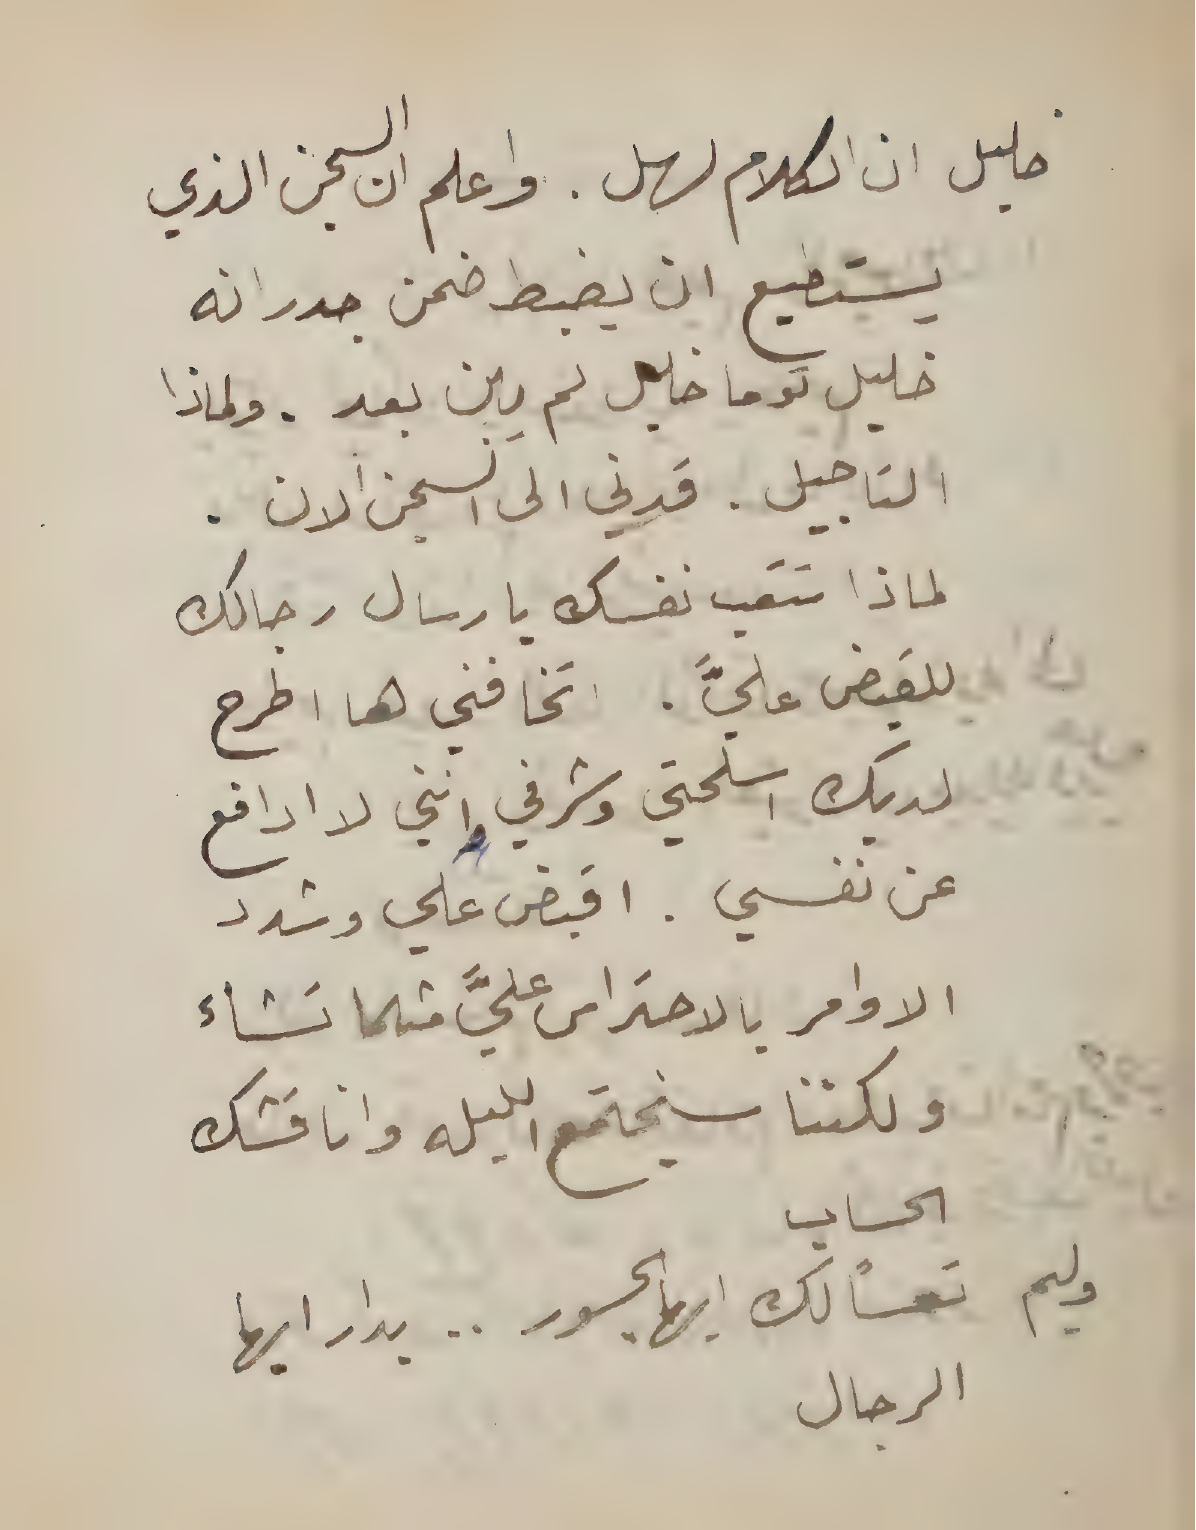 خليل ان الكلام لسهل . واعلم ان السجن الذي
يستطيع ان يضبط ضمن جدرانه
خليل توما خليل لم يبن بعد . ولماذا
التاجيل . قدني الى السجن الان .
لماذا تتعب نفسك بارسال رجالك
للقبض عليَّ . اتخافني ها اطرح
لديك اسلحتي وشرفي انني لا ادافع
عن نفسي . اقبض علي وشدد
الاوامر بالاحتراس عليَّ مثلما تشاء
ولكننا سنجتمع الليله واناقشك
الحساب
وليم تعساً لك ايها الجسور .. بدار ايها
الرجال